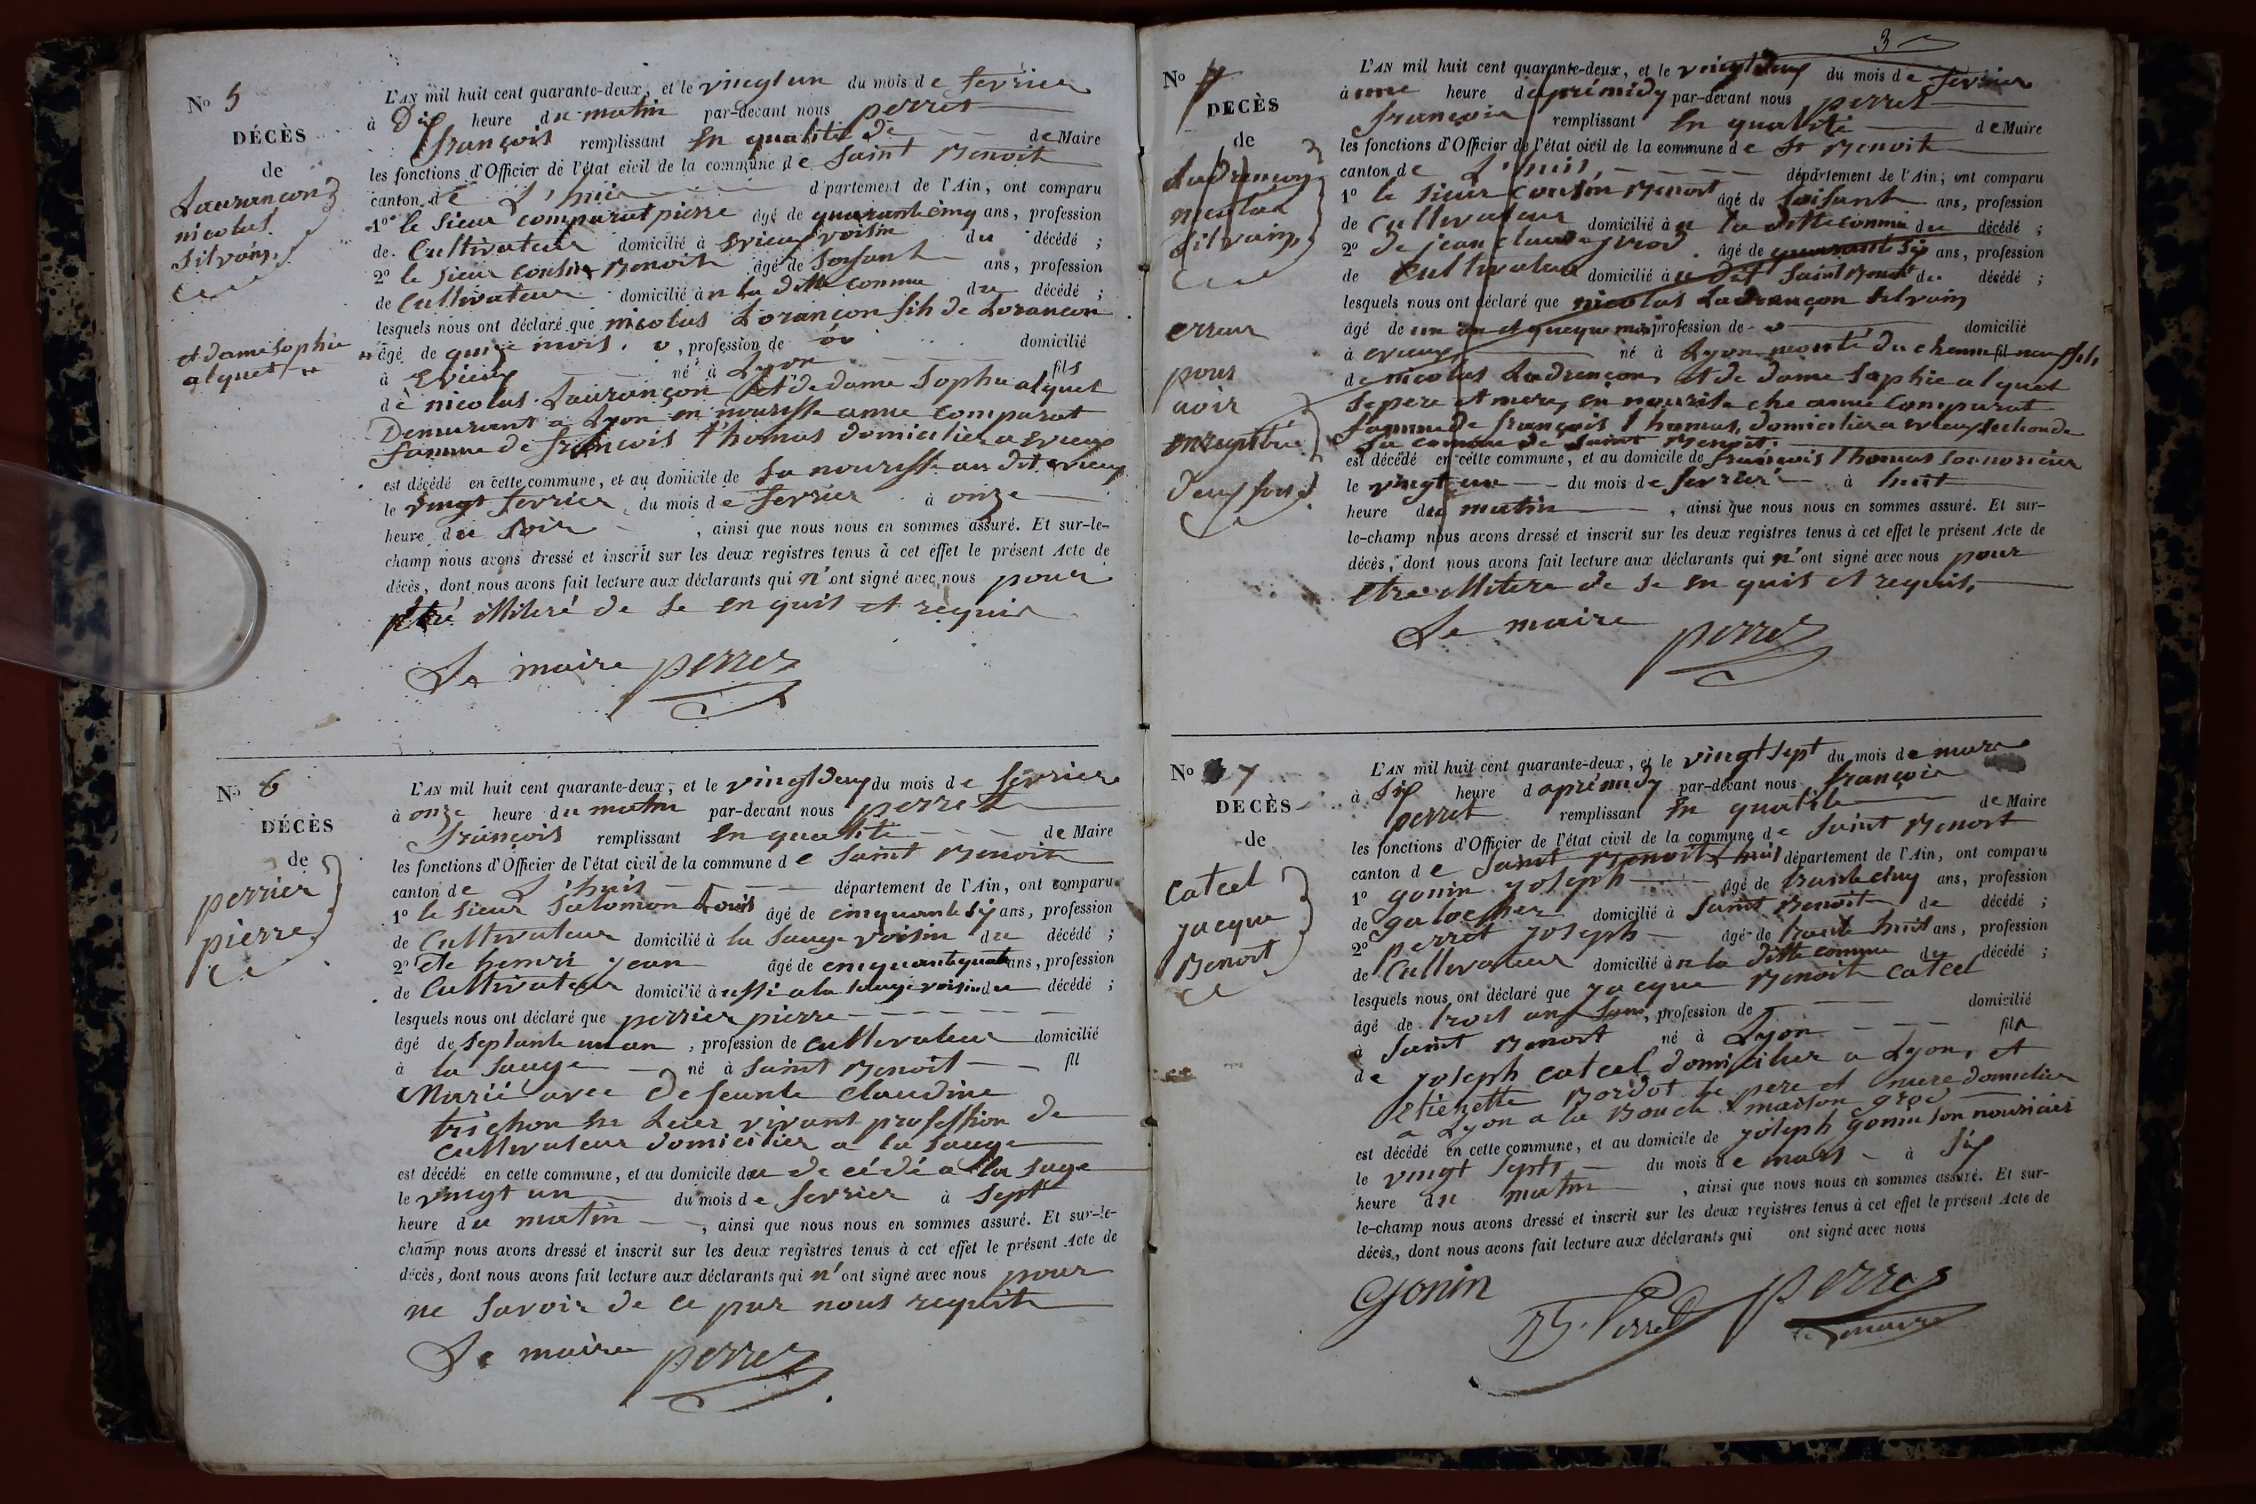 No 5
DÉCÈS
de
Laurançon
nicolas
Silvain
et dame Sophie
alquet
L'AN mil huit cent quarante-deux, et le vingt un du mois de fevrier
à Dix heure du matin par-devant nous perret
françois remplissant En qualité de de Maire
les fonctions d'Officier de l'état civil de la commune de Saint Benoit
canton de L'huis département de l'Ain, ont comparu
1° le Sieur comparat pierre âgé de quarante cinq ans, profession
de Cultivateur domicilié à Evieux voisin du décédé ;
2° le Sieur cousin Benoit âgé de Soisant ans, profession
de Cultivateur domicilié à n la ditte commune du décédé ;
lesquels nous ont déclaré que nicolas Lorançon fils de Lorancon
âgé de quinze mois , profession de domicilié
à Evieux né à Lyon fils
de nicolas Laurançon Et de dame Sophie alquet
Demurant a Lyon en nourisse anne comparat
famme de françois thomas domicilier a Evieux
est décédé en cette commune, et au domicile de sa nourisse au dit Evieux
le vingt fevrier du mois de fevrier à onze
heure du Soir , ainsi que nous nous en sommes assuré. Et sur-le-
champ nous avons dressé et inscrit sur les deux registres tenus à cet effet le présent Acte de
décès, dont nous avons fait lecture aux déclarants qui n'ont signé avec nous pour
être illiteré de Se En quis et requis
Le maire perret
No 6
DÉCÈS
de
perrier
pierre
L'AN mil huit cent quarante-deux, et le vingt deux du mois de fevrier
à onze heure du matin par-devant nous perret
françois remplissant En qualité de Maire
les fonctions d'Officier de l'état civil de la commune de Saint Benoit
canton de L'huis département de l'Ain, ont comparu
1° le Sieur Salomon Louis âgé de cinquante six ans, profession
de Cultivateur domicilié à la Sauge voisin du décédé ;
2° de henri jean âgé de cinquante quatre ans, profession
de Cultivateur domicilié à ussi a la Sauge voisin du décédé ;
lesquels nous ont déclaré que perrier pierre
âgé de Septante un an , profession de Cultivateur domicilié
à la Sauge né à Saint Benoit fil
Marié avec Defeunte Claudine
trichon de Leur vivant profession de
Cultivateur domicilier a la Sauge
est décédé en cette commune, et au domicile du de cédé a la Sage
le vingt un du mois de fevrier à Sept
heure du matin , ainsi que nous nous en sommes assuré. Et sur-le-
champ nous avons dressé et inscrit sur les deux registres tenus à cet effet le présent Acte de
décès, dont nous avons fait lecture aux déclarants qui n'ont signé avec nous pour
ne Savoir de ce par nous requit
Le maire perret
3
No 7
DÉCÈS
de
Ladrançon
nicolas
Silvain
erreur
pour
avoir
enregistré
deux fois
L'AN mil huit cent quarante-deux, et le vingt deux du mois de fevrier
à une heure daprémidy par-devant nous perret
françois remplissant En qualité de Maire
les fonctions d'Officier de l'état civil de la commune de St Benoit
canton de L'huis département de l'Ain, ont comparu
1° le Sieur Cousin Benoit âgé de Soisant ans, profession
de Cultivateur domicilié à n la ditte commune du décédé ;
2° de jean claude âgé de quarant six ans, profession
de Cultivateur domicilié à u dit Saint Benoit du décédé ;
lesquels nous ont déclaré que nicolas Ladrançon Silvain
âgé de un an et queque mois profession de domicilié
à Evieux né à Lyon monté du chemin neuf fils
de nicolas Ladrençon et de dame Sophie alquet
Se pere et mere, en nourise che anne Comparat
famme de françois thomas, domicilier a Evieux section de
la commune de Saint Benoit.
est décédé en cette commune, et au domicile de françois thomas Son nouricier
le vingt un du mois de fevrier à huit
heure du matin , ainsi que nous nous en sommes assuré. Et sur-
le-champ nous avons dressé et inscrit sur les deux registres tenus à cet effet le présent Acte de
décès, dont nous avons fait lecture aux déclarants qui n'ont signé avec nous pour
Etre illitere de Se En quis et requis.
Le maire
perret
No 7
DÉCÈS
de
Catcel
jacque
Benoit
L'AN mil huit cent quarante-deux, et le vingt sept du mois de mars
à Six heure d aprémidy par-devant nous françois
perret remplissant En qualité de Maire
les fonctions d'Officier de l'état civil de la commune de Saint Benoit
canton de Saint Benoit L'huis département de l'Ain, ont comparu
1° gonin joseph âgé de trante cinq ans, profession
de galocher domicilié à Saint Benoit de décédé ;
2° perret joseph âgé de trante huit ans, profession
de Cultivateur domicilié à n la ditte commune du décédé ;
lesquels nous ont déclaré que jacque Benoit Catcel
âgé de trois ans , profession de domicilié
à Saint Benoit né à Lyon fils
de joseph catcel domicilier a Lyon, et
Etienette Bordot Se pere et mere domicilier
a Lyon a la Bouche maison
est décédé en cette commune, et au domicile de joseph gonin son nouricier
le vingt Septs du mois de mars à Six
heure du matin , ainsi que nous nous en sommes assuré. Et sur-
le-champ nous avons dressé et inscrit sur les deux registres tenus à cet effet le présent Acte de
décès, dont nous avons fait lecture aux déclarants qui ont signé avec nous
Gonin
Perret
perret
maire